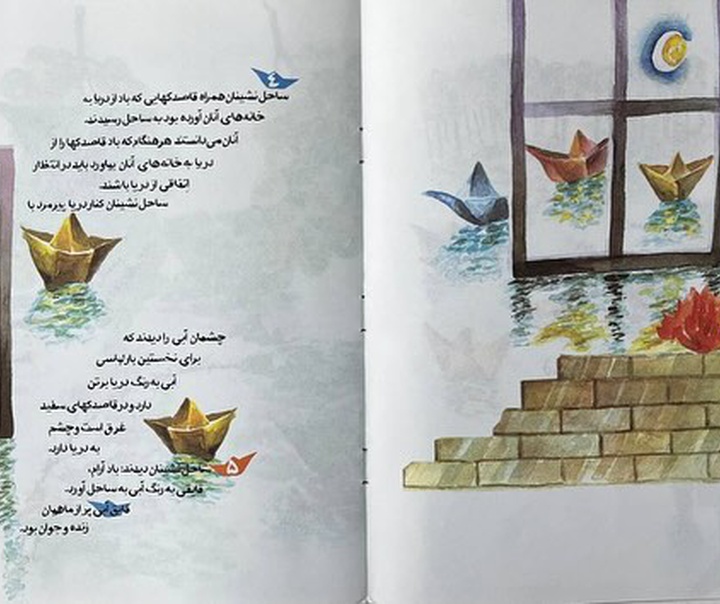 ۴
ساحل نشینان همراه قاصدکهایی که باد از دریا به
خانه‌های آنان آورده بود به ساحل رسیدند.
آنان می‌دانستند هر هنگام که باد قاصدکها را از
دریا به خانه‌های آنان بیاورد باید در انتظار
اتفاقی از دریا باشند.
ساحل نشینان کنار دریا پیرمرد با
چشمان آبی را دیدند که
برای نخستین بار لباسی
آبی به رنگ دریا بر تن
دارد و در قاصدکهای سفید
غرق است و چشم
به دریا دارد.
۵
ساحل نشینان دیدند: باد آرام،
قایقی به رنگ آبی به ساحل آورد.
قایق آبی پر از ماهیان
زنده و جوان بود.